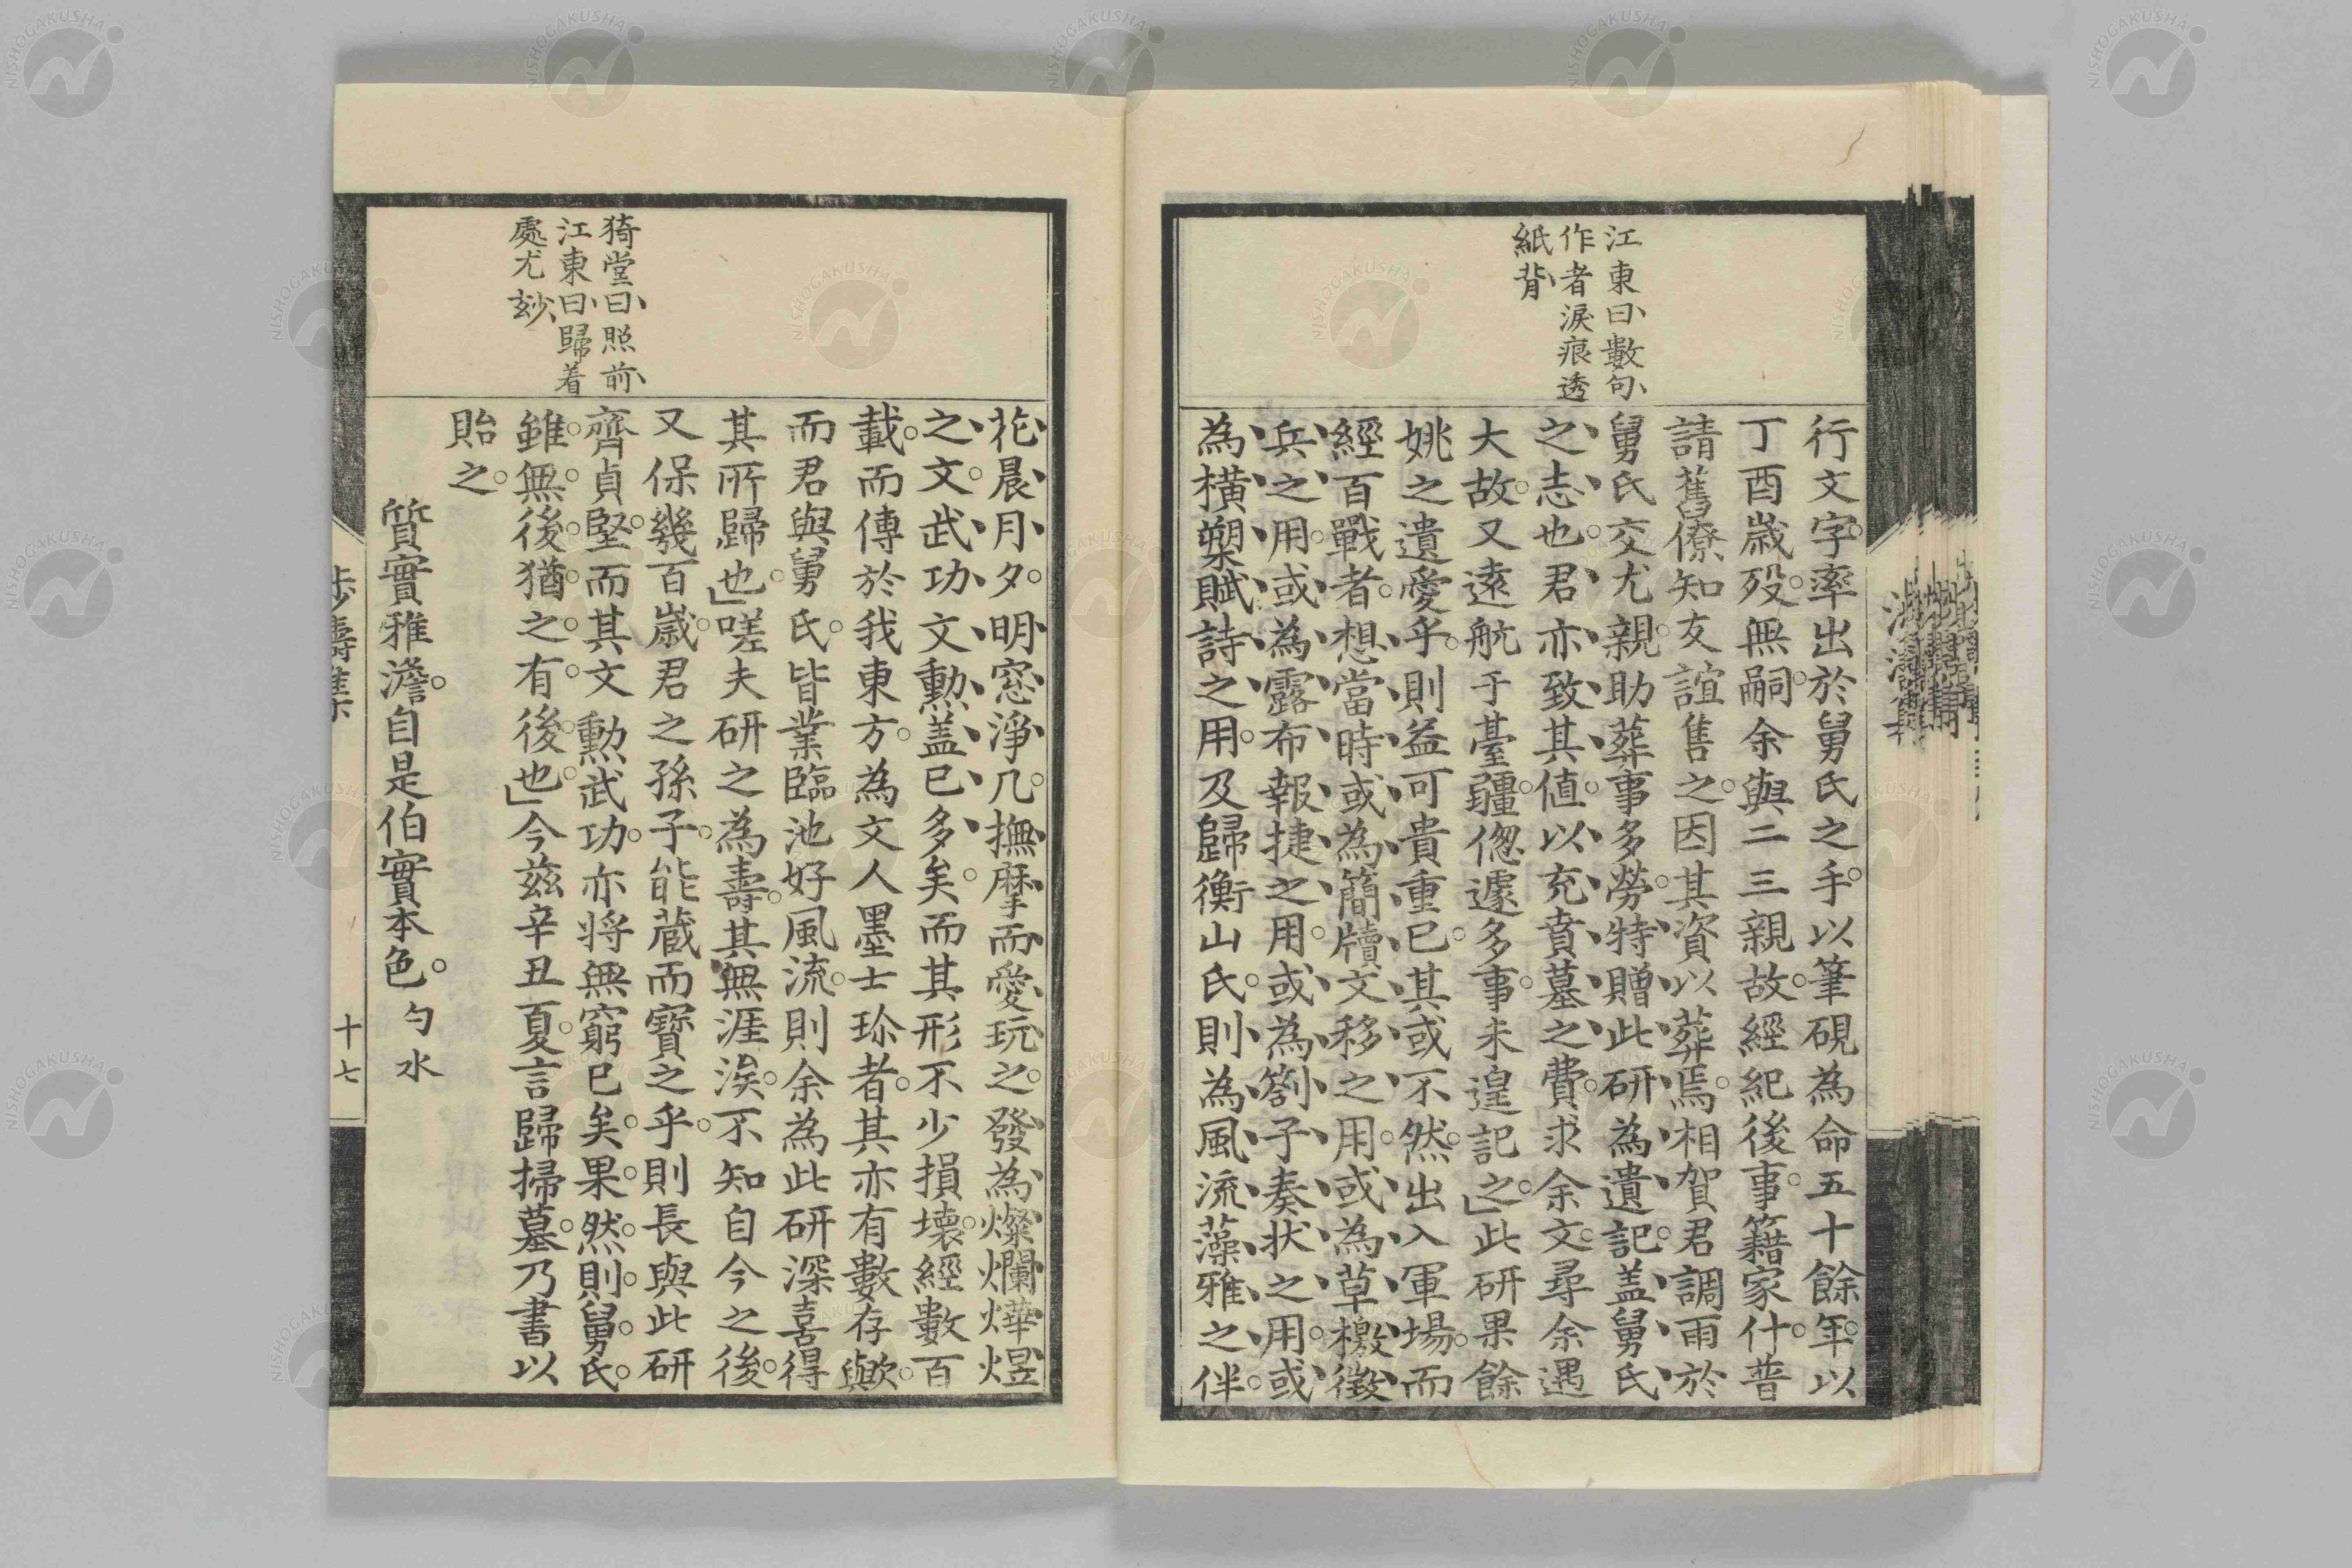 江東曰數句
作者淚痕透
紙背
行文字率出於舅氏之手以筆硯為命五十餘年以
丁酉歲歿無嗣余與二三親故經紀後事籍家什普
請舊僚知友誼售之因其資以葬焉相賀君調雨於
舅氏交尤親助葬事多勞特贈此研為遺記盖舅氏
之志也君亦致其値以充賁墓之費求余文尋余遇
大故又遠航于臺疆偬遽多事未遑記之」此研果餘
姚之遺愛乎則益可貴重已其或不然出入軍場而
經百戰者想當時或為簡牘文移之用或為草檄徵
兵之用或為露布報捷之用或為劄子奏狀之用或
為橫槊賦詩之用及歸衡山氏則為風流藻雅之伴
猗堂曰照前
江東曰歸着
處尤玅
花晨月夕明窓淨几撫摩而愛玩之發為燦爛燁煜
之文武功文勳盖已多矣而其形不少損壞經數百
載而傳於我東方為文人墨士珎者其亦有數存歟
而君與舅氏皆業臨池好風流則余為此研深喜得
其所歸也」嗟夫研之為壽其無涯涘不知自今之後
又保幾百歲君之孫子能藏而寶之乎則長與此研
齊貞堅而其文勳武功亦将無窮已矣果然則舅氏
雖無後猶之有後也」今茲辛丑夏言歸掃墓乃書以
貽之
質實雅澹自是伯實本色 勺水
十七
NISHOGAKUSHA